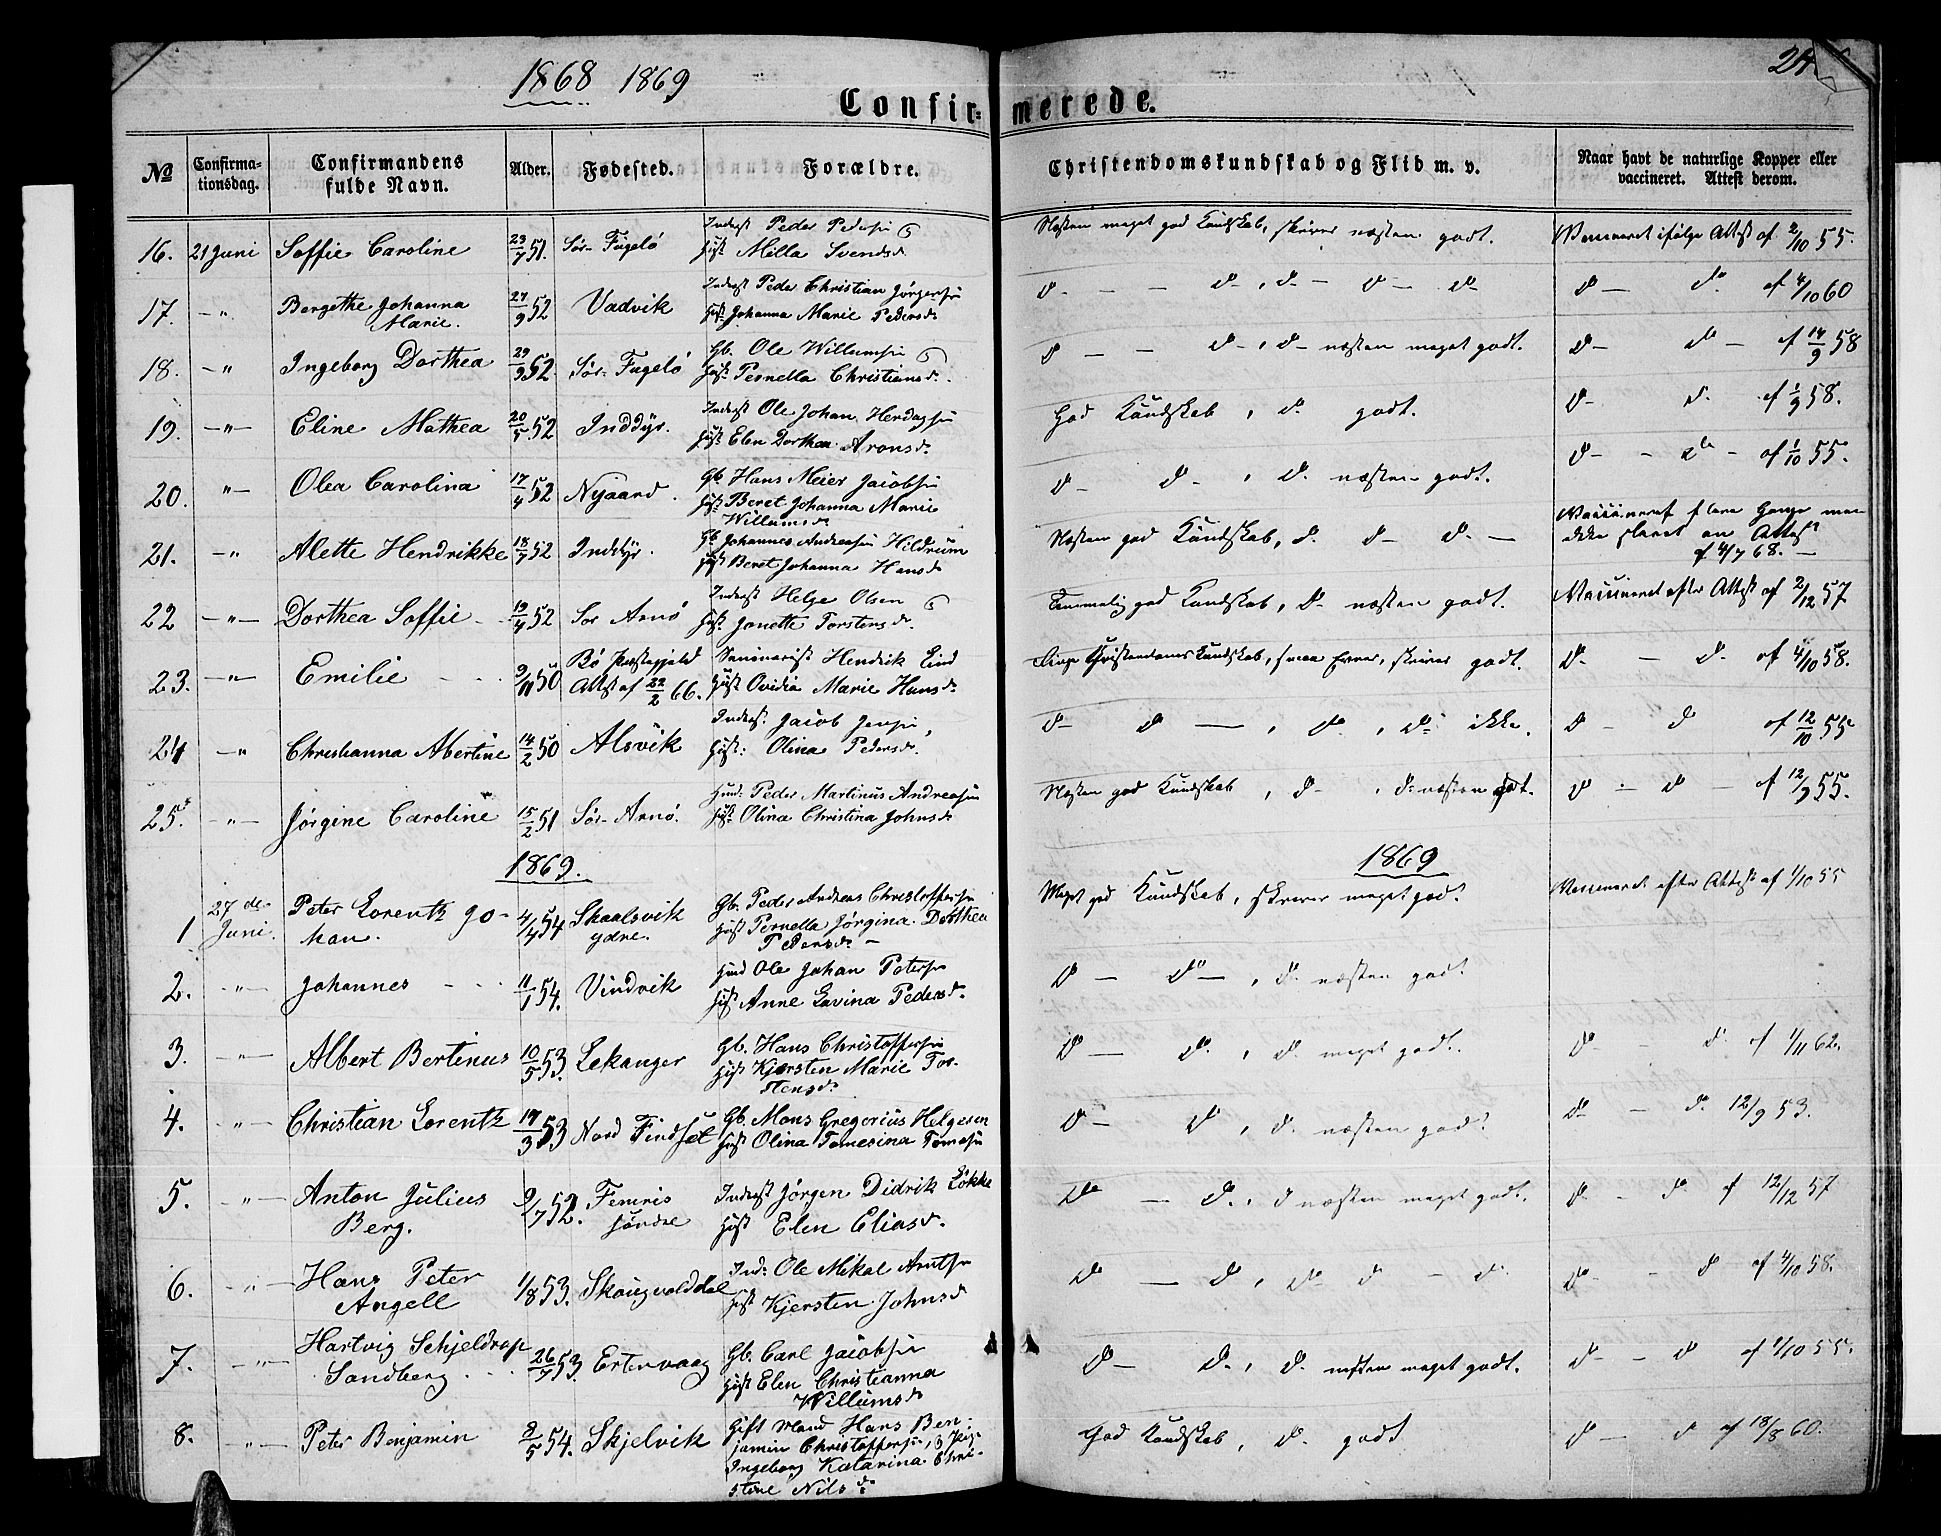 1868 1869
24
Confir- merede.
No Confirma-tionsdag. Confirmandens fulde Navn. Alder. Fødested. Forældre. Christendomskundskab og Flid m. v. Naar havt de naturlige Kopper eller vaccineret. Attest derom.
16. 21 Juni Soffie Caroline 23/7 51. Sør-Fugelø Inderst Peder Pedersen Hust Milla Svendsd. Næsten meget god Kundskab, skriver næsten godt. Vaccineret ifølge Attest af 2/10 55.
17. -"- Bergethe Johanna Marie. 27/9 52 Vadvik Inderst Peder Christian Jørgensen Hust. Johanna Marie Pedersd. d. - - d., d. - d. - d. d. - d. af 4/10 60
18. -"- Ingeborg Dorthea 29/9 52. Sør-Fugelø Gb. Ole Willumsen Hust. Pernella Christiansd. d. - - d., d. næsten meget godt. d. - d. - af 14/9 58
19. -"- Eline Mathea 20/5 52 Inddyr. Inderst Ole Johan Hust. Elen Dorthea Aronsd. God Kundskab, d. godt. d. - d. af 1/9 58.
20. -"- Olea Carolina 17/4 52 Nygaard. Gb. Hans Meier Jacobsen Hust. Beret Johanna Marie Willumsd. d. - d., d. næsten godt. d. - d. - af 1/10 55.
21. -"- Alette Hendrikke 18/7 52 Inddyr. Gb. Johannes Andreasen Hildrum Hust. Beret Johanna Hansd. Næsten god Kundskab, d. d. - d. - Vaccineret flere Gange men ikke slaaet an Attest af 4/7 68. -
22 -"- Dorthea Soffie - 19/4 52 Sør Arnø Inderst Helge Olsen Hust. Jonette Torstensd. Temmelig god Kundskab, d. næsten godt. Vaccineret efter Attest af 2/12 57
23. -"- Emilie - - 9/11 50 Bø Præstegjeld Attest af 22/2 66. Seminarist Hendrik Lind Hust. Ovidia Marie Hansd. Christendomskundskab, smaa Evner, skriver godt. d. - d. af 4/10 58.
24 -"- Christianna Abertine 14/2 50 Alsvik Inderst. Jacob Jensen, Hust: Olina Pedersd. d. - d. -, d., d. ikke. d. - d af 12/10 55
25. -"- Jørgine Caroline 15/2 51 Sør-Arnø. Huusm. Peder Martinus Andreasen Hust. Olina Christina Johnsd. Næsten god Kundskab, d. -, d. næsten godt. d - d - af 12/9 55.
1869. 1869
1 27de Juni. Peter Lorentz Johan. 4/4 54 Skaalsvik ydre. Gb. Peder Andreas Christoffersen Hust Pernella Jørgina Dorthea Pedersd. - Meget god Kundskab, skriver meget god. Vaccineret efter Attest af 1/10 55
2. -"- Johannes - - 11/1 54. Vindvik Ole Johan Petersen Hust Anne Lavina Pedersd. d - d -, d. næsten godt
3. -"- Albert Bertinus 10/5 53. Lekanger Gb. Hans Christoffersen Hust Kjersten Marie Torstensd. d - d., d. meget godt. d. - d. af 1/11 62.
4. -"- Christian Lorentz 17/3 53 Nord Findset Gb. Mons Gregorius Helgesen Hust Olina Tomesina Tomasen d - d, d. næsten god d. - d. 12/9 53.
5. -"- Anton Julius Berg. 9/7 52. Femris søndre Inderst Jørgen Didrik Løkke Hust Elen Eliasd. d - d., d næsten meget godt. d. - d. af 12/12 57
6. -"- Hans Peter Angell 1/8 53. Skaugvolddal Ind. Ole Mikal Arntsen Hust Kjersten Johnsd d - d, d d - d. d. - d af 4/10 58.
7. -"- Hartvig Schjeldrop Sandberg. - - 26/7 53. Ertenvaag Gb. Carl Jacobsen Hust Elen Christianna Willumsd d - d., d. næsten meget godt. d. - d af 1/10 55.
8. -"- Peter Benjamin 8/5 54. Skjelvik Gift Mand Hans Benjamin Christoffersen, Pige Ingeborg Katarina Christine Nilsd: God Kundskab, d. godt d - d af 18/8 60.